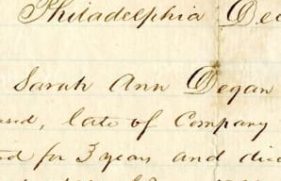 Philadelphia Dec
Sarah Ann Degan
sed, late of Company
ed for 3 years and died